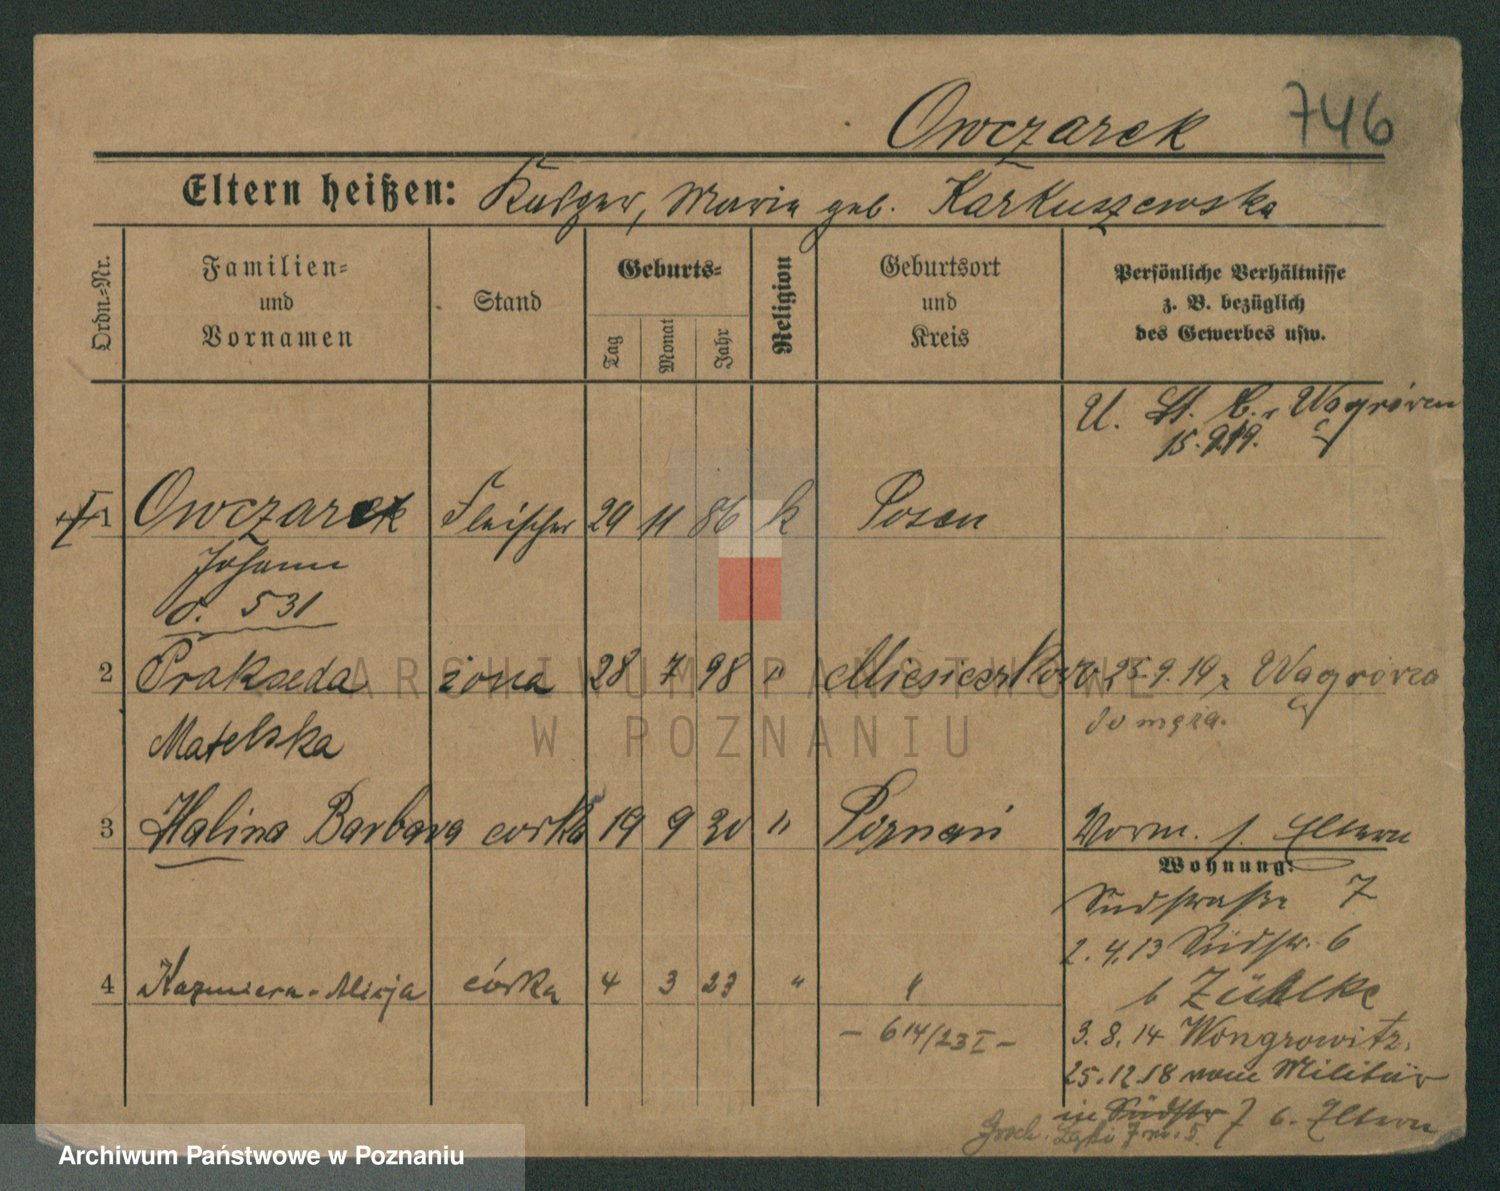 Owczarek 746
Eltern heißen: Kasper, Marie geb. Karkuszewska
Ordn.-Nr.
Familien-
und
Vornamen
Stand
Geburts-
Tag
Monat
Jahr
Religion
Geburtsort
und
Kreis
Persönliche Verhältnisse
z. B. bezüglich
des Gewerbes usw.
U. St. C. Wągrówca
15.9.19.
1 Owczarek Fleischer 29 11 86 k Posen
Johann
d. 531
2 Prakseda żona 28 7 98 " Mieścisko 25.9.19 z Wągrówca
Matelska
do męża.
3 Halina Barbara corka 19 9 20 " Poznań Vorm. s. Eltern
Wohnung:
Südstraße 7
2.4.13 Südstr. 6
b Zühlke
4 Kazmiera-Alicja córka 4 3 23 " "
- 614/23 I -
3.8.14 Wongrowitz.
25.12.18 vom Militär
in Südstr 7 b. Eltern
Groch. Łąki 7 m. 5.
ARCHIWUM PAŃSTWOWE
W POZNANIU
Archiwum Państwowe w Poznaniu